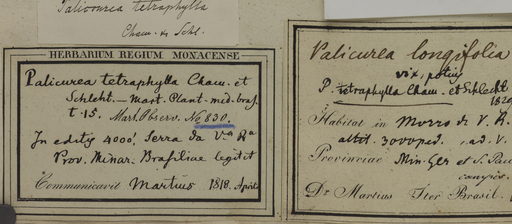 Palicourea tetraphylla
Cham. & Schl.
HERBARIUM REGIUM MONACENSE
Palicurea tetraphylla Cham. et
Schlecht. — Mart. Plant. med. bras.
t. 15. Mart. Observ. No 830.
In editis 4000', Serra da Va Ra
Prov. Minar. Brasiliae legit
Communicavit Martius 1818. April
Palicurea longifolia
vix, potius
P. tetraphylla Cham. et Schlecht
1829
Habitat in Morro de V. R.
altit. 3000 ped. , ad V.
Provinciae Min. Ger et S. Paul
campis.
Dr. Martius Iter Brasil.